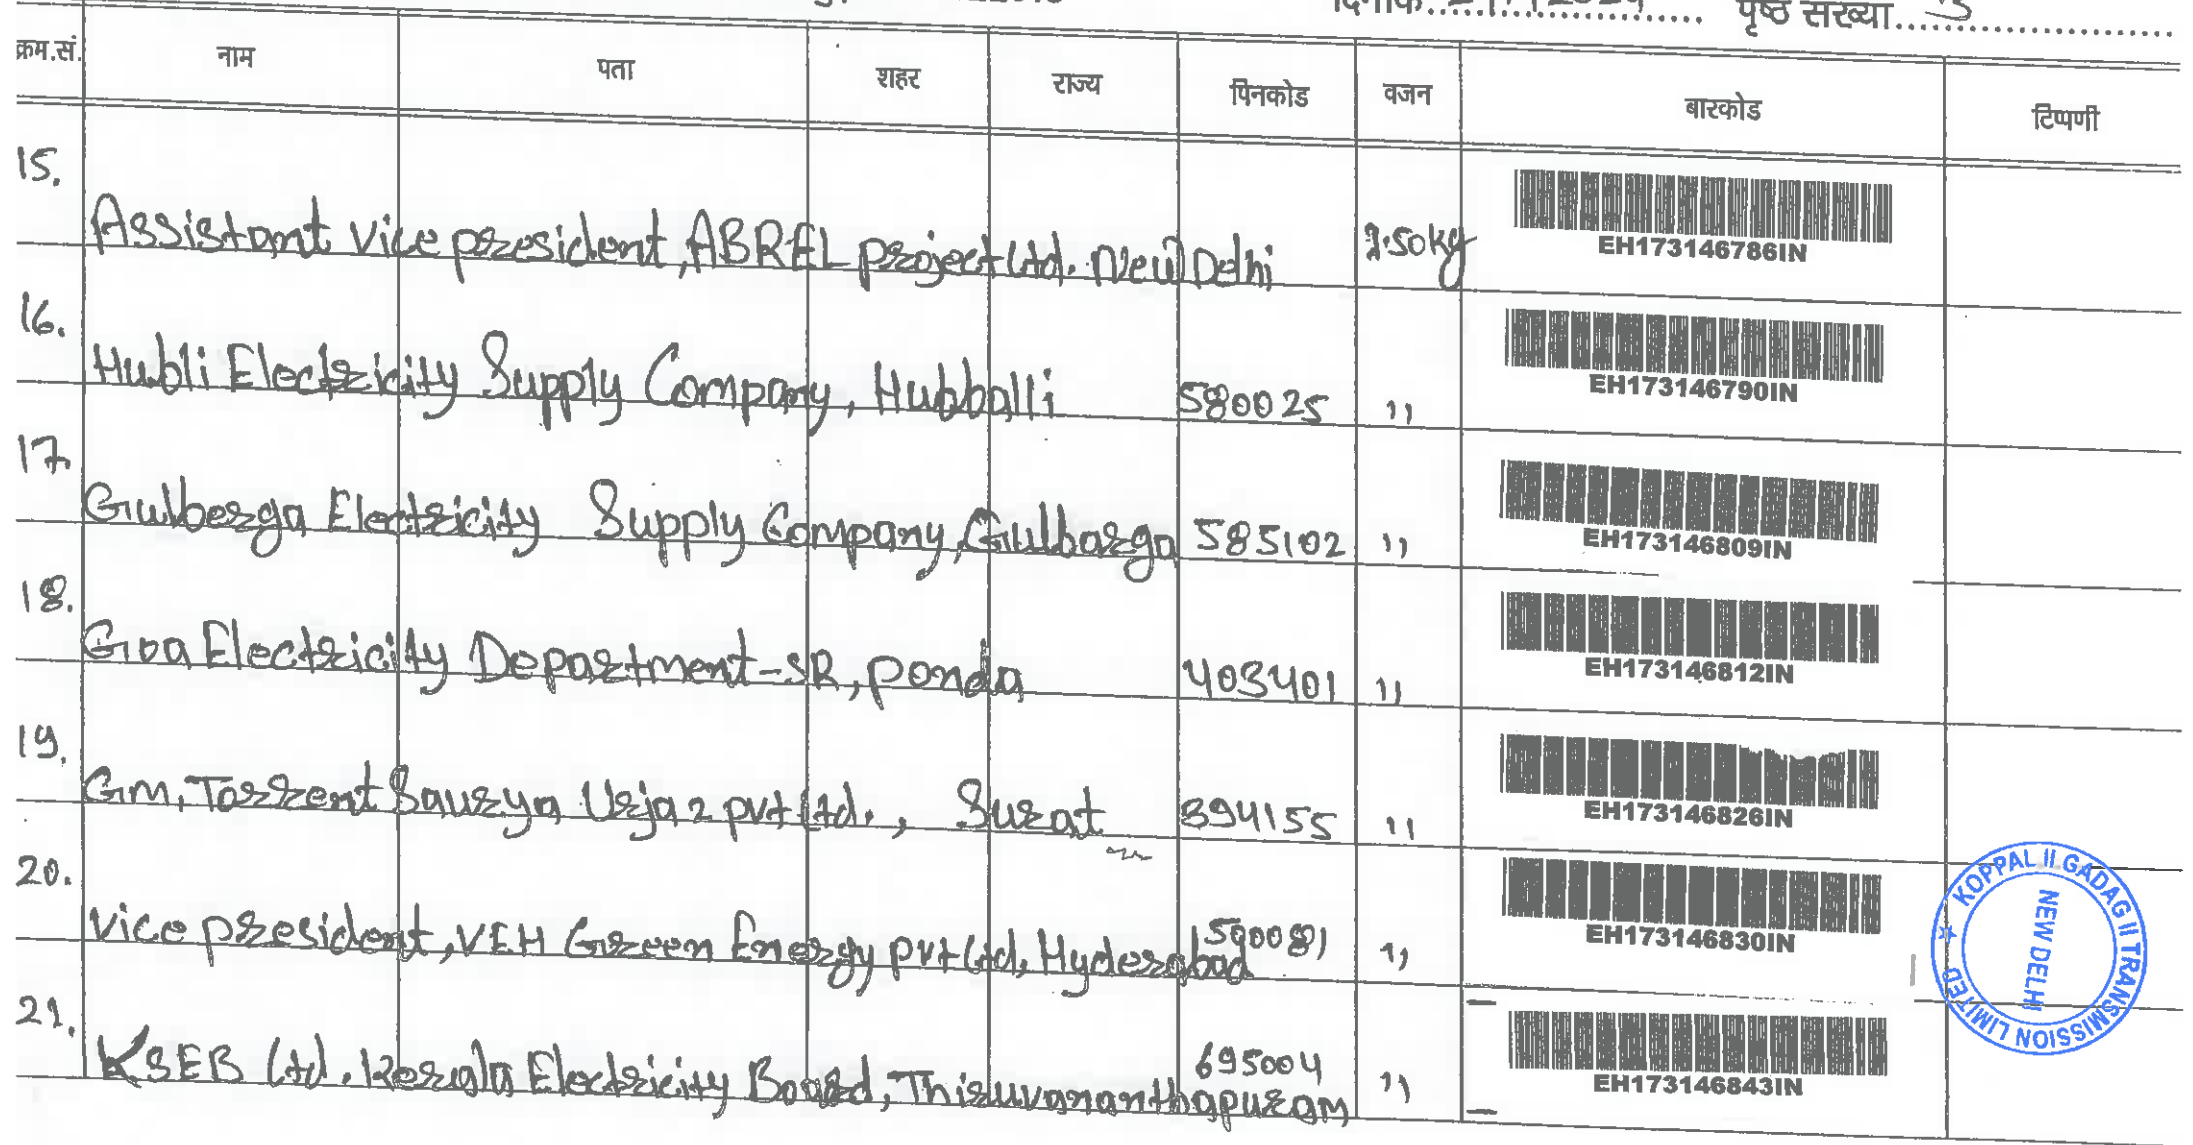 दिनांक.................... पृष्ठ संख्या...3...................
क्रम.सं. नाम पता शहर राज्य पिनकोड वजन बारकोड टिप्पणी
15. Assistant Vice president, ABREL project Ltd. New Delhi .50kg EH173146786IN
16. Hubli Electricity Supply Company, Hubballi 580025 ,, EH173146790IN
17. Gulberga Electricity Supply Company, Gulbarga 585102 ,, EH173146809IN
18. Goa Electricity Department-SR, ponda 403401 ,, EH173146812IN
19. GM, Torrent Saurya Urja 2 pvt Ltd., Surat 394155 ,, EH173146826IN
20. Vice president, VEH Green Energy pvt Ltd, Hyderabad 500081 ,, EH173146830IN
21. KSEB Ltd. Kerala Electricity Board, Thiruvananthapuram 695004 ,, EH173146843IN
KOPPAL II GADAG II TRANSMISSION LIMITED
NEW DELHI